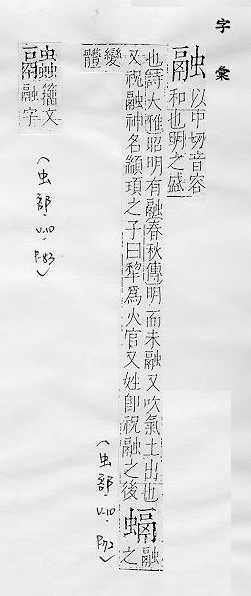 字彙
融 以中切音容
和也明之盛
也詩大雅昭明有融春秋傳明而未融又吹氣土出也 融
又祝融神名顓頊之子曰犂爲火官又姓卽祝融之後 䗤 之
變
體
籀文
融字
(虫部, V.10, P.72)
(虫部, V.10, P.83)